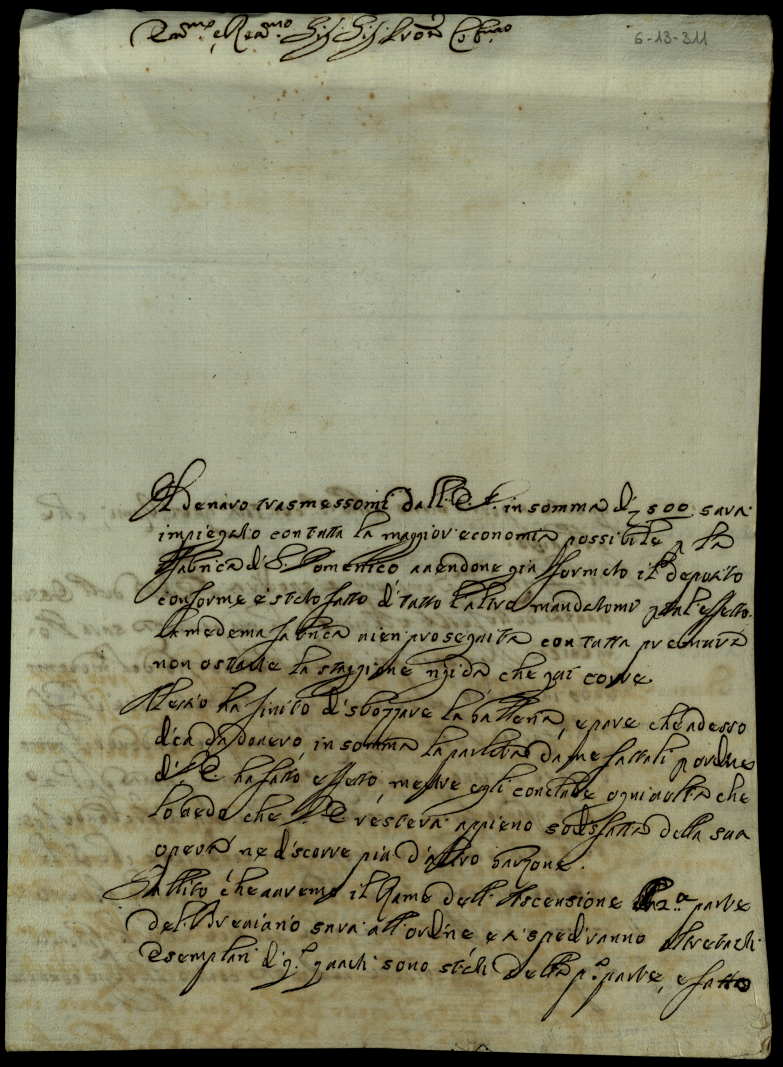 Em.mo e Rev.mo Sig. Sig. Pron. Col.mo
6-13-311
Il denaro trasmessomi dall' E. V. in somma di 500 sarà
impiegato con tutta la maggior economia possibile p la
fabrica di S. Domenico avendone già formato il deposito
conforme è stato fatto di tutto l'altro mandatomi p tal' effetto.
La medema fabrica vien proseguita con tutta premura
non ostante la stagione rigida che qui corre.
Alessio ha finito di sbozzare la battaglia, e pare che adesso
dica da dovero, in somma la parlata da me fattali p ordine
di V. E. ha fatto effetto, mentre egli conclude ogni volta che
lo vedo che V. E. resterà appieno sodisfatta della sua
opera ne discorre più d'altro garzone.
Subbito che avremo il Rame dell' Ascensione la 2.a parte
del Breviario sarà all' ordine e si spediranno altretanti
Esemplari di q.ta quanti sono stati della p.a parte, e fatto